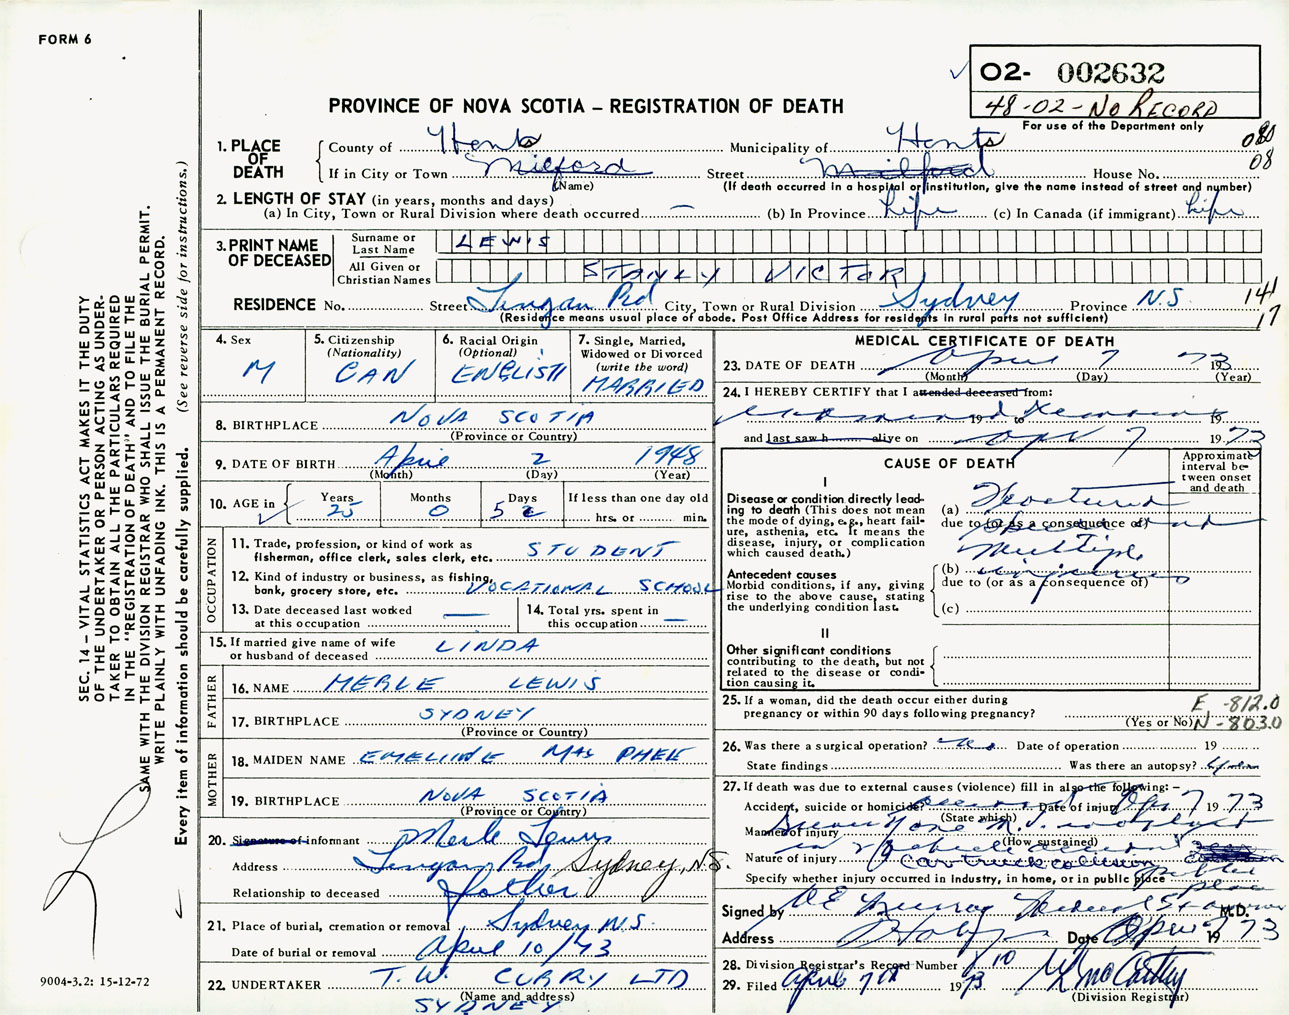 FORM 6
02- 002632
48-02-NO RECORD
For use of the Department only
PROVINCE OF NOVA SCOTIA – REGISTRATION OF DEATH
1. PLACE OF DEATH
County of Hants Municipality of Hants 080
If in City or Town Milford Street Milford House No. 08
(Name) (If death occurred in a hospital or institution, give the name instead of street and number)
2. LENGTH OF STAY (in years, months and days)
(a) In City, Town or Rural Division where death occurred — (b) In Province Life (c) In Canada (if immigrant) Life
3. PRINT NAME OF DECEASED
Surname or Last Name LEWIS
All Given or Christian Names STANLY VICTOR
RESIDENCE No. Street Lingan Rd City, Town or Rural Division Sydney Province N.S. 141
(Residence means usual place of abode. Post Office Address for residents in rural parts not sufficient) 17
4. Sex M
5. Citizenship (Nationality) CAN
6. Racial Origin (Optional) ENGLISH
7. Single, Married, Widowed or Divorced (write the word) MARRIED
8. BIRTHPLACE NOVA SCOTIA
(Province or Country)
9. DATE OF BIRTH April 2 1948
(Month) (Day) (Year)
10. AGE in Years 25 Months 0 Days 5 If less than one day old hrs. or min.
OCCUPATION
11. Trade, profession, or kind of work as fisherman, office clerk, sales clerk, etc. STUDENT
12. Kind of industry or business, as fishing, bank, grocery store, etc. VOCATIONAL SCHOOL
13. Date deceased last worked at this occupation —
14. Total yrs. spent in this occupation —
15. If married give name of wife or husband of deceased LINDA
FATHER
16. NAME MERLE LEWIS
17. BIRTHPLACE SYDNEY
(Province or Country)
MOTHER
18. MAIDEN NAME EMELINE MAC PHEE
19. BIRTHPLACE NOVA SCOTIA
(Province or Country)
20. Signature of informant Merle Lewis
Address Lingan Rd Sydney, N.S.
Relationship to deceased father
21. Place of burial, cremation or removal Sydney N.S.
Date of burial or removal April 10/73
22. UNDERTAKER T.W. CURRY LTD
(Name and address)
SYDNEY
MEDICAL CERTIFICATE OF DEATH
23. DATE OF DEATH April 7 1973
(Month) (Day) (Year)
24. I HEREBY CERTIFY that I attended deceased from:
examined deceased 19 to 19
and last saw h alive on Apr 7 1973
CAUSE OF DEATH
Approximate interval between onset and death
I
Disease or condition directly leading to death (This does not mean the mode of dying, e.g., heart failure, asthenia, etc. It means the disease, injury, or complication which caused death.)
(a) Fractured
due to (or as a consequence of) and
Multiple
Antecedent causes
Morbid conditions, if any, giving rise to the above cause, stating the underlying condition last.
(b) injuries
due to (or as a consequence of)
(c)
II
Other significant conditions contributing to the death, but not related to the disease or condition causing it.
25. If a woman, did the death occur either during pregnancy or within 90 days following pregnancy?
(Yes or No)
E -812.0
N -803.0
26. Was there a surgical operation? no Date of operation 19
State findings Was there an autopsy?
27. If death was due to external causes (violence) fill in also the following:-
Accident, suicide or homicide? accident Date of injury Apr 7 1973
(State which)
Manner of injury
(How sustained)
in vehicle accident
Nature of injury car truck collision
Specify whether injury occurred in industry, in home, or in public place public place
Signed by M.D.
Address Date Apr 7 1973
28. Division Registrar's Record Number 10
29. Filed April 7th 1973
(Division Registrar)
SEC. 14 – VITAL STATISTICS ACT MAKES IT THE DUTY
OF THE UNDERTAKER OR PERSON ACTING AS UNDER-
TAKER TO OBTAIN ALL THE PARTICULARS REQUIRED
IN THE "REGISTRATION OF DEATH" AND TO FILE THE
SAME WITH THE DIVISION REGISTRAR WHO SHALL ISSUE THE BURIAL PERMIT.
WRITE PLAINLY WITH UNFADING INK. THIS IS A PERMANENT RECORD.
Every item of information should be carefully supplied. (See reverse side for instructions.)
9004-3.2: 15-12-72